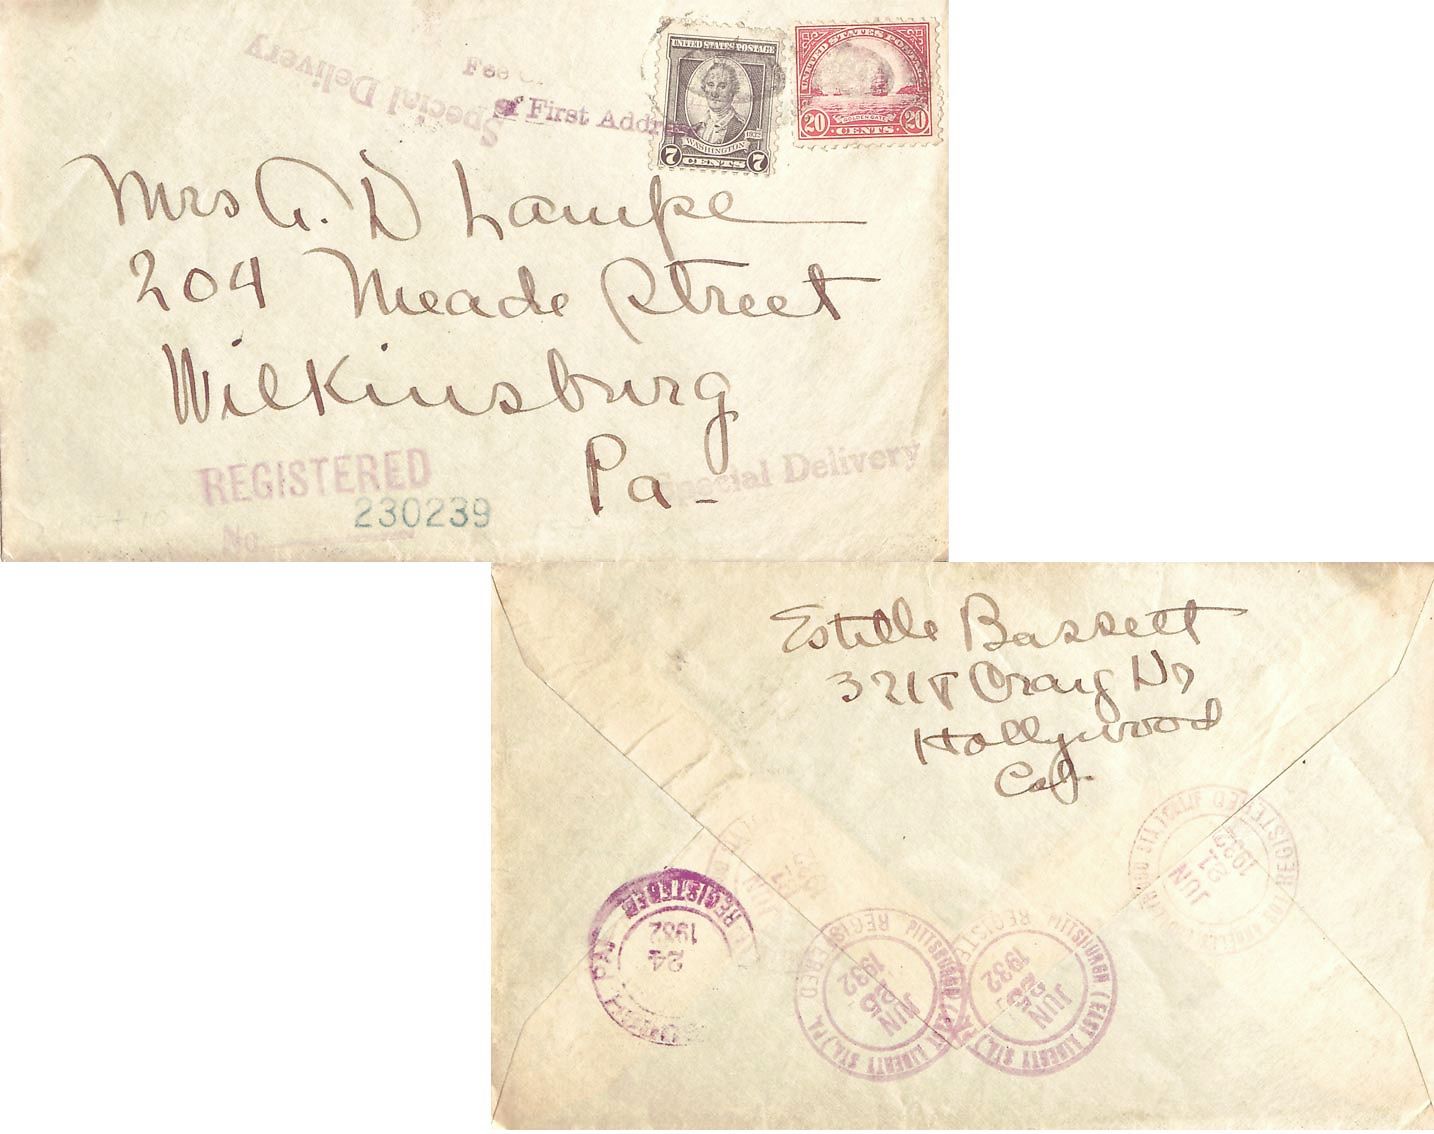 Special Delivery
Fee
of First Address
UNITED STATES POSTAGE
1732
WASHINGTON
7 CENTS 7
UNITED STATES POSTAGE
GOLDEN GATE
20 CENTS 20
Mrs A. D Lampe
204 Meade Street
Wilkinsburg
Pa-
Special Delivery
REGISTERED
No 230239
Estelle Bassett
3218 Craig Dr
Hollywood
Cal.
REGISTERED
JUN
1932
REGISTERED
24
1932
PA.
REGISTERED
PITTSBURGH (EAST LIBERTY STA.) PA.
JUN
25
1932
REGISTERED
PITTSBURGH (EAST LIBERTY STA.) PA.
JUN
25
1932